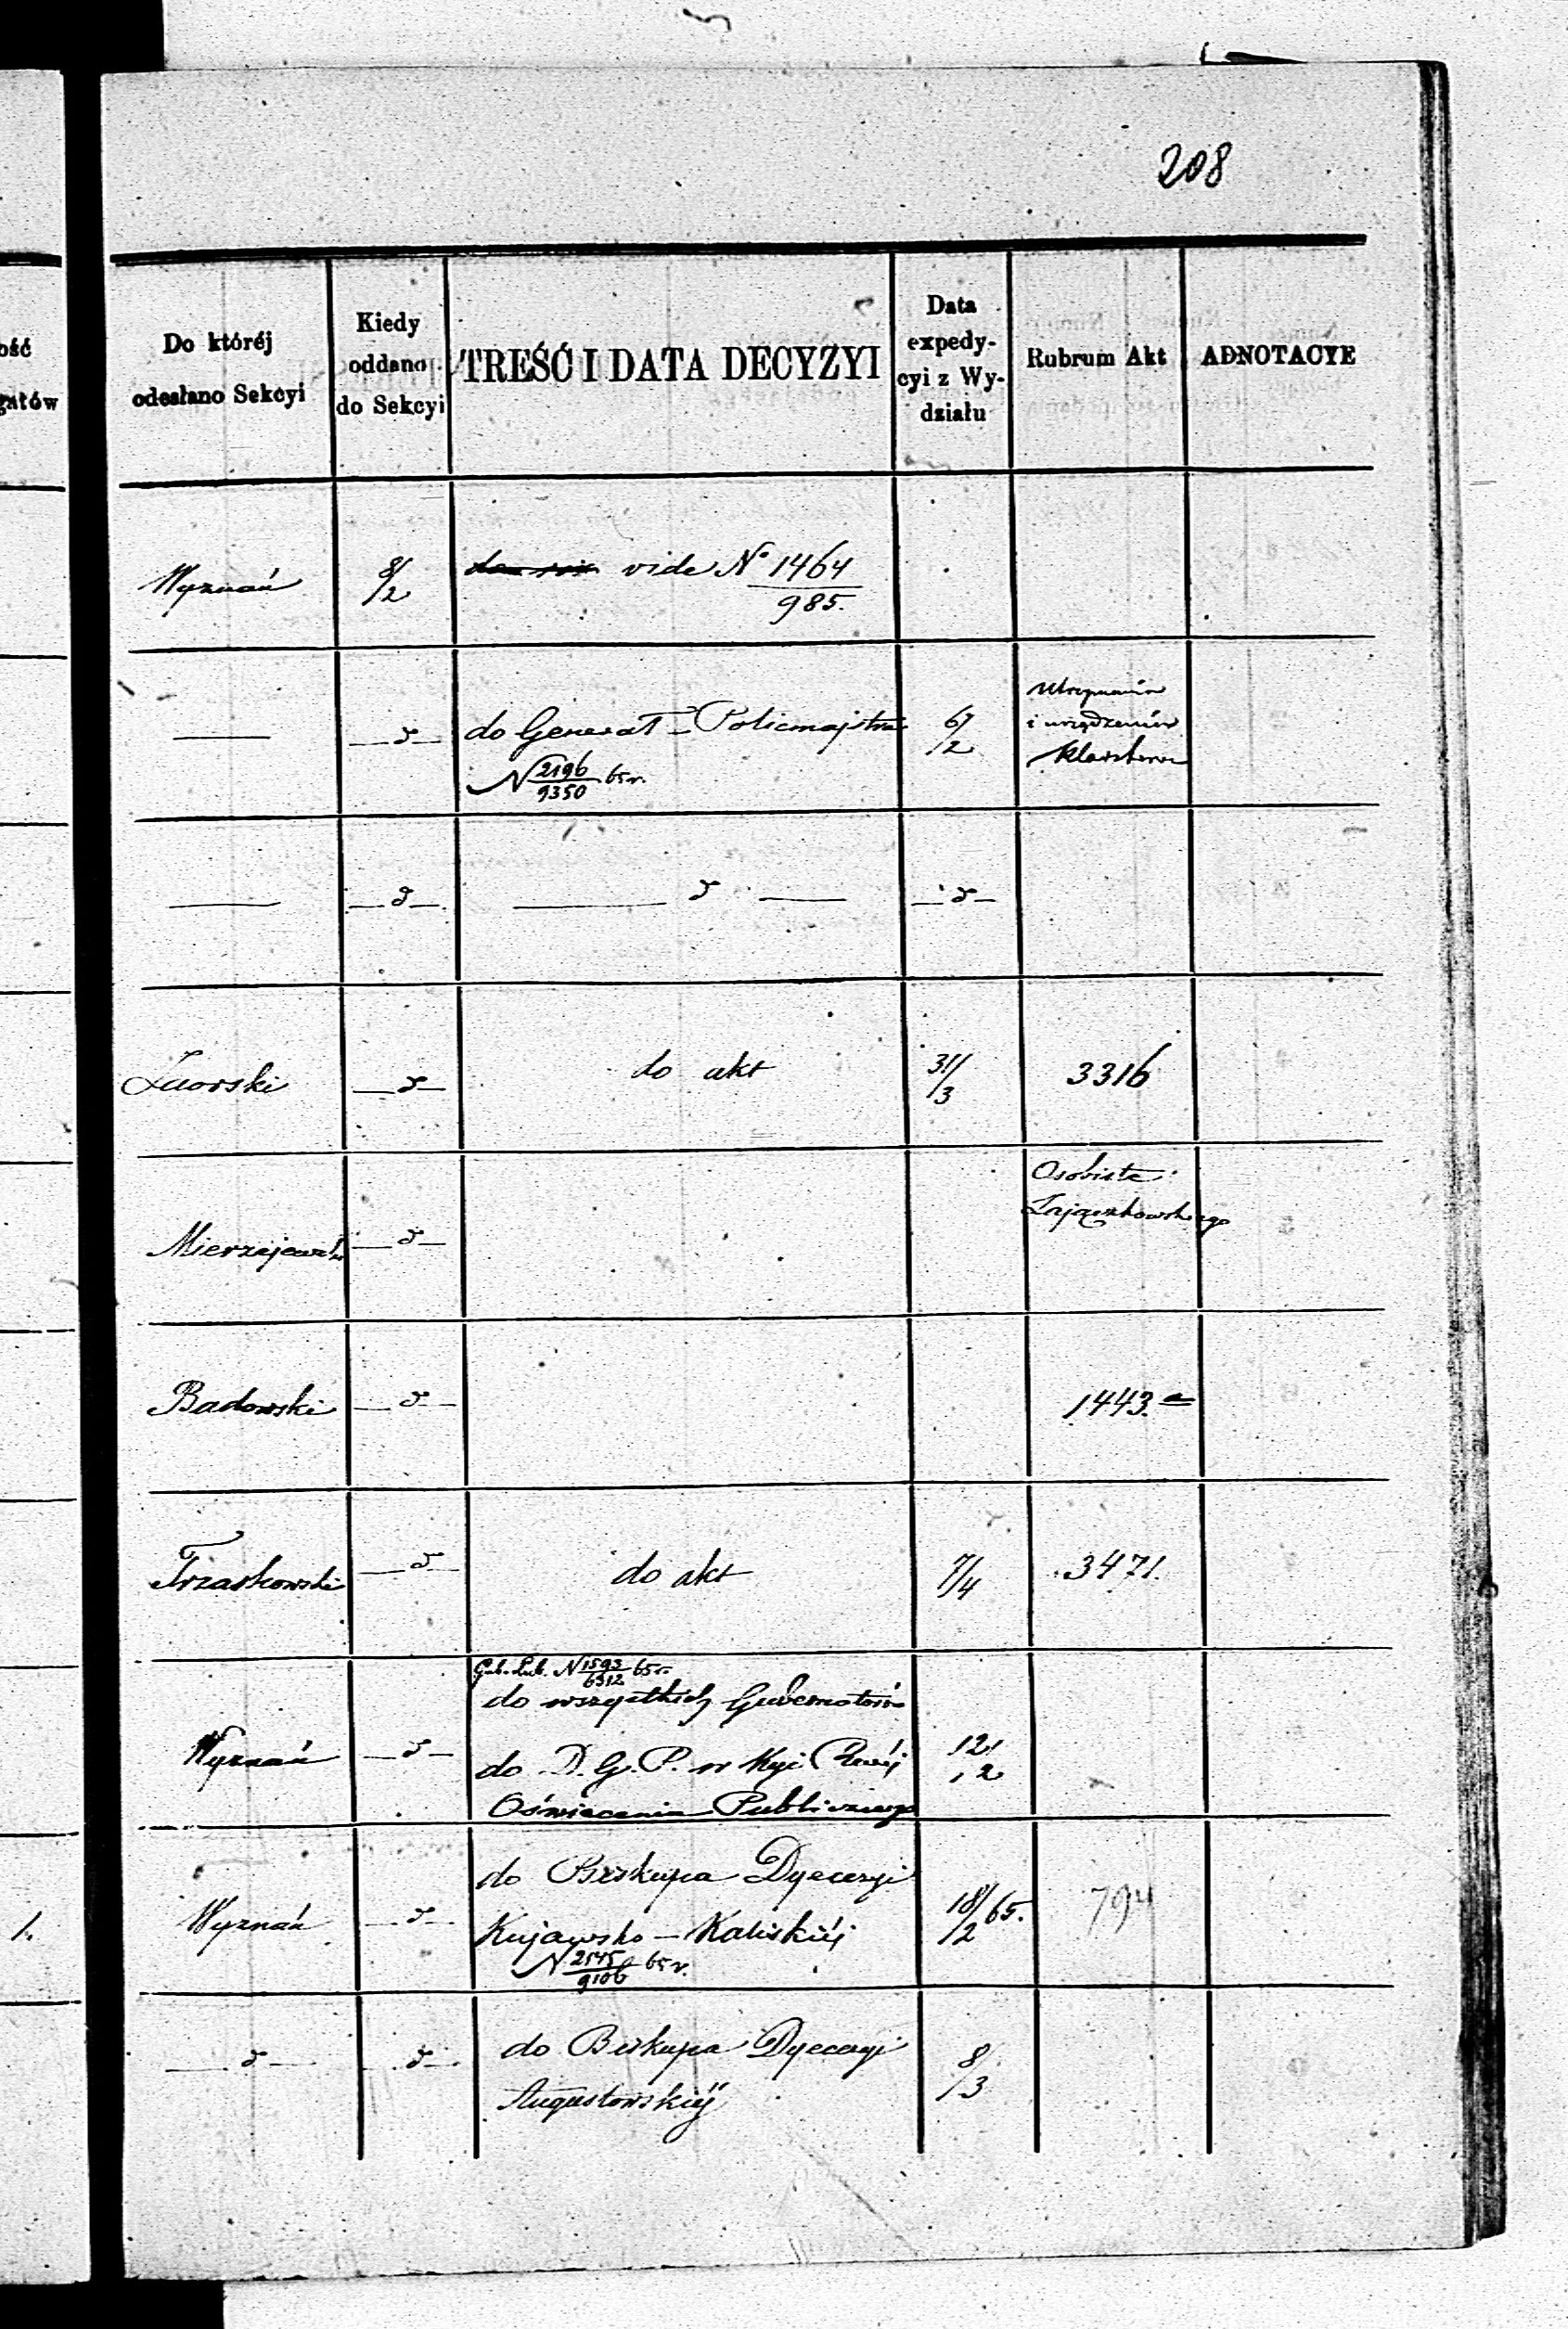 208
ość
gatów
Do któréj
odesłano Sekcyi
Kiedy
oddano
do Sekcyi
TREŚĆ I DATA DECYZYI
Data
expedy-
cyi z Wy-
działu
Rubrum Akt
ADNOTACYE
Wyznań
8/2
vide No 1464
985.
do Generał-Policmajstra
N 2196/9350 65 r.
6/2
Utrzymania
i urządzenia
Klasztorów
— d —
— d —
— d —
— d —
— d —
do akt
31/3
3316
Mierzejewski
— d —
Osobiste
Zajączkowskiego
Badowski
— d —
1443. a
Trzaskowski
— d —
do akt
7/4
3471.
Wyznań
— d —
Gub. Lub. N 1593/6512 65 r.
do wszystkich Gubernatorów
do D. G. P. w Kyi Rwéj
Oświecenia Publicznego
12/2
1.
Wyznań
— d —
do Biskupa Dyecezyi
Kujawsko-Kaliskiéj
N 2545/9106 65 r.
18/2 65.
794
— d —
— d —
do Biskupa Dyecezyi
Augustowskiéj
8/3